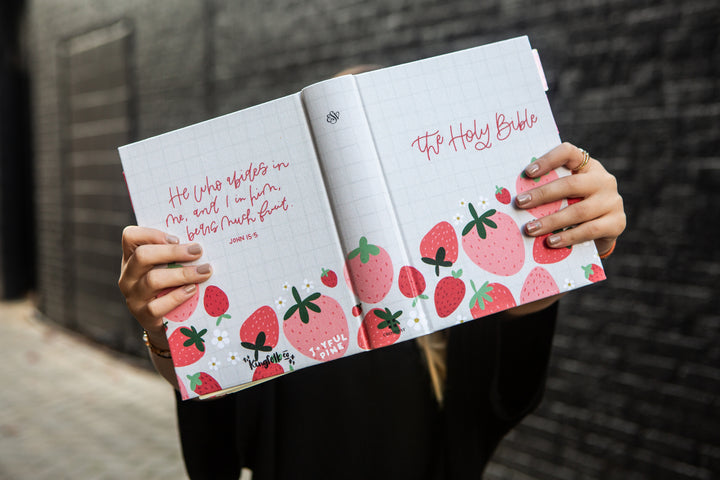 He who abides in
me, and I in him,
bears much fruit.
JOHN 15:5
Kingfolk co
JOYFUL
PINE
the Holy Bible